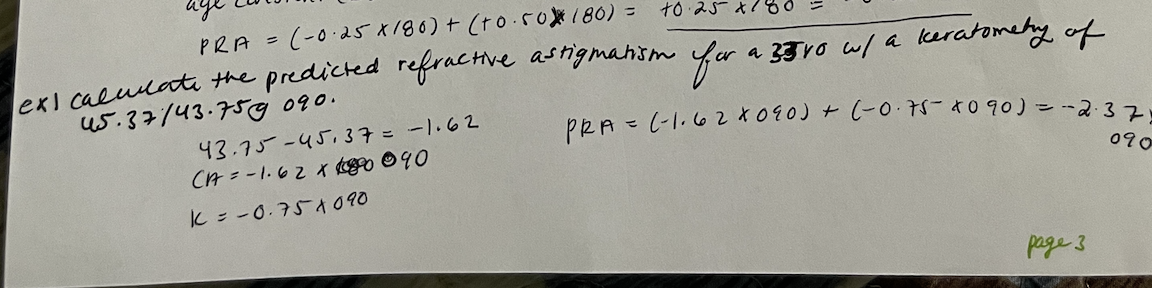 PRA = (-0.25 x 180) + (+0.50 x 180) = +0.25 x 180 =
ex1 calculate the predicted refractive astigmatism for a 35 yo w/ a keratometry of
45.37/43.75@ 090.
43.75 - 45.37 = -1.62
CA = -1.62 x 090
K = -0.75 x 090
PRA = (-1.62 x 090) + (-0.75 x 090) = -2.37x
090
page 3